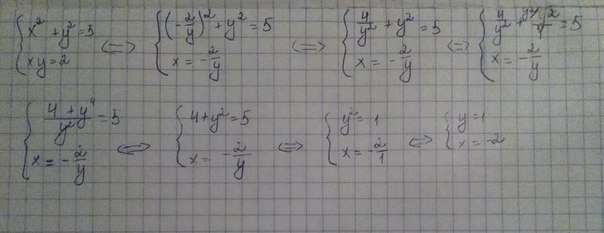 { x² + y² = 5 ; xy = 2 ⇔ { (-2/y)² + y² = 5 ; x = -2/y ⇔ { 4/y² + y² = 5 ; x = -2/y ⇔ { 4/y² + y²/ = 5 ; x = -2/y
{ (4 + y⁴)/y² = 5 ; x = -2/y ⇔ { 4 + y² = 5 ; x = -2/y ⇔ { y² = 1 ; x = -2/1 ⇔ { y = 1 ; x = -2